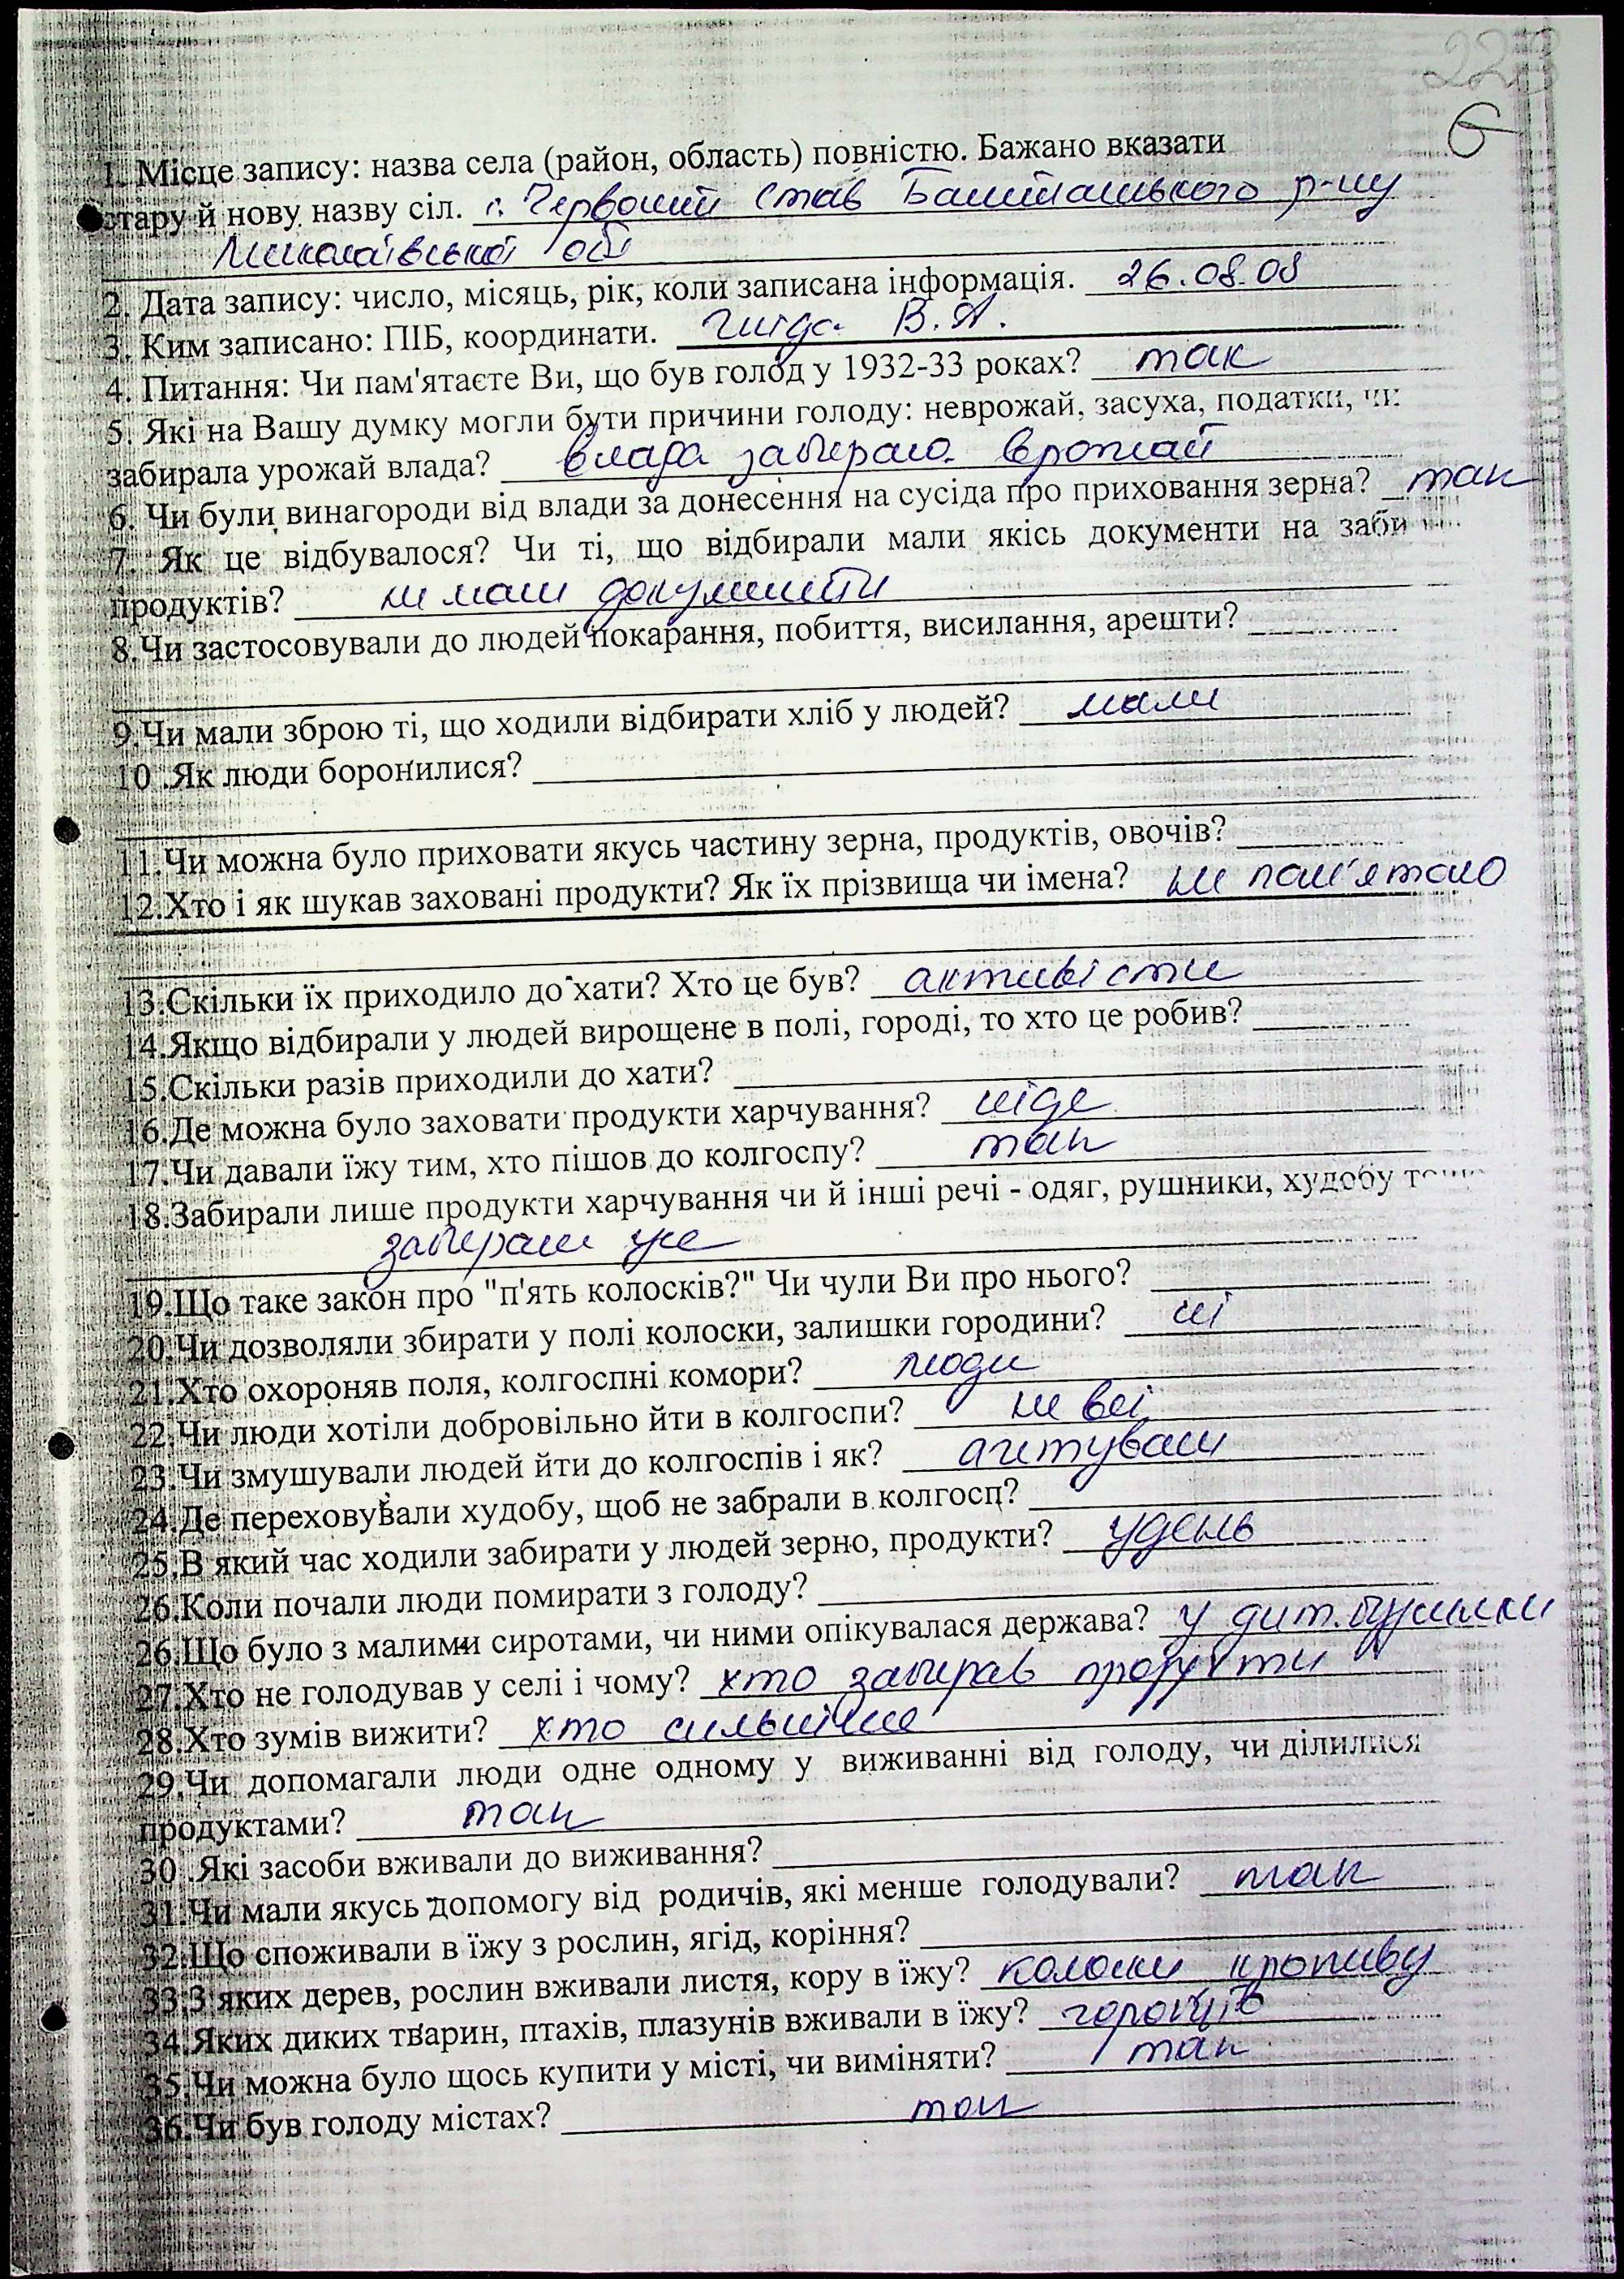 223
6
1. Місце запису: назва села (район, область) повністю. Бажано вказати
стару й нову назву сіл. с. Червоний Став Баштанського р-ну
Миколаївської обл
2. Дата запису: число, місяць, рік, коли записана інформація. 26.08.08
3. Ким записано: ПІБ, координати. В.А.
4. Питання: Чи пам'ятаєте Ви, що був голод у 1932-33 роках? так
5. Які на Вашу думку могли бути причини голоду: неврожай, засуха, податки, чи
забирала урожай влада? влада забирала врожай
6. Чи були винагороди від влади за донесення на сусіда про приховання зерна? так
7. Як це відбувалося? Чи ті, що відбирали мали якісь документи на заби
продуктів? не мали документи
8.Чи застосовували до людей покарання, побиття, висилання, арешти?
9.Чи мали зброю ті, що ходили відбирати хліб у людей? мали
10 .Як люди боронилися?
11.Чи можна було приховати якусь частину зерна, продуктів, овочів?
12.Хто і як шукав заховані продукти? Як їх прізвища чи імена? не пам'ятаю
13.Скільки їх приходило до хати? Хто це був? активісти
14.Якщо відбирали у людей вирощене в полі, городі, то хто це робив?
15.Скільки разів приходили до хати?
16.Де можна було заховати продукти харчування? ніде
17.Чи давали їжу тим, хто пішов до колгоспу? так
18.Забирали лише продукти харчування чи й інші речі - одяг, рушники, худобу
забирали усе
19.Що таке закон про "п'ять колосків?" Чи чули Ви про нього?
20.Чи дозволяли збирати у полі колоски, залишки городини? ні
21.Хто охороняв поля, колгоспні комори? люди
22.Чи люди хотіли добровільно йти в колгоспи? не всі
23.Чи змушували людей йти до колгоспів і як? агітували
24.Де переховували худобу, щоб не забрали в колгосп?
25.В який час ходили забирати у людей зерно, продукти? удень
26.Коли почали люди помирати з голоду?
26.Що було з малими сиротами, чи ними опікувалася держава? у дит.будинки
27.Хто не голодував у селі і чому? хто забирав продукти
28.Хто зумів вижити? хто сильніше
29.Чи допомагали люди одне одному у виживанні від голоду, чи ділилися
продуктами? так
30 .Які засоби вживали до виживання?
31.Чи мали якусь допомогу від родичів, які менше голодували? так
32.Що споживали в їжу з рослин, ягід, коріння?
33.З яких дерев, рослин вживали листя, кору в їжу? кропиву
34.Яких диких тварин, птахів, плазунів вживали в їжу? горобців
35.Чи можна було щось купити у місті, чи виміняти? так
36.Чи був голоду містах? так